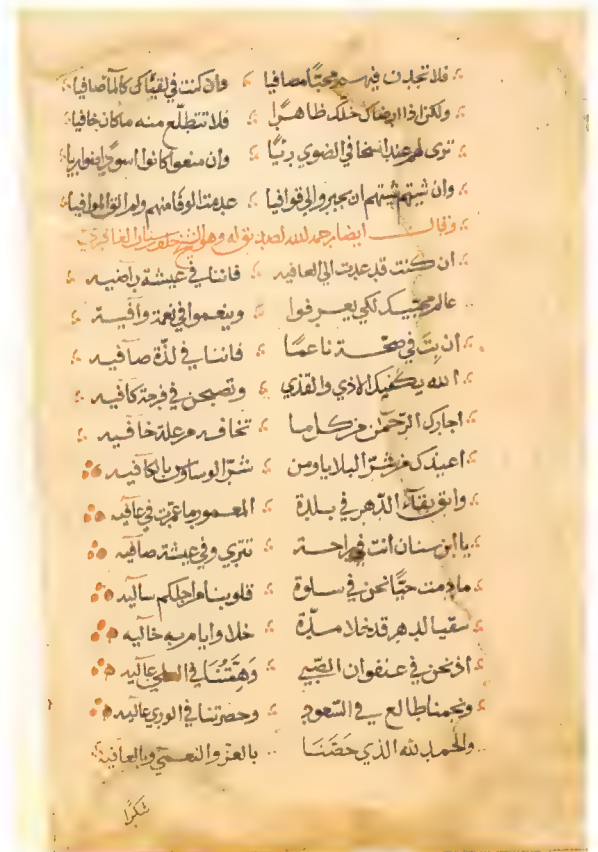 فلا تجدن فيهم محبًّا مصافيا وان كنت في لقياك كالماء صافيا
ولكن اذا ابصرك خلك ظاهرًا فلا تتطلع منه ما كان خافيا
ترى لهم عند في الضوي ريًّا وان منعوا كانوا اسودًا ضواريا
وان شيتهم شيتهم ان يجيروا الي قوافيا عدمت الوفا منهم ولم الق الموافيا
وقال ايضا رحمه الله لصديق له وهو خلف سنان
ان كنت قد عدت الي العافيه فاننا في عيشة راضيه
عالم محبيك لكي يعرفوا وينعموا في نعمة وافية
ان بت في صحّة ناعمًا فاننا في لذّة صافيه
الله يكفيك الاذي والقذي وتصبحن في فرحة كافيه
اجارك الرحمن من كل ما تخافه من علة خافيه
اعيذك من شرّ البلايا ومن شرّ الوساوس بالكافيه
وابق بقآء الدّهر في بلدة المعمور ما عمّرت في عافيه
يا ابن سنان انت في راحة تتري وفي عيشة صافيه
ما دمت حيًّا نحن في سلوة قلوبنا من اجلكم ساليه
سقيا لدهر قد خلا مدّة خلا وايام به خاليه
اذ نحن في عنفوان الصّبي وَهِمَّتُنَا في العلي عاليه
ونجمنا طالع في السّعود وحضرتنا في الوري عاليه
والحمد لله الذي خصّنَا بالعزّ والنعمي وبالعافية
شكرًا